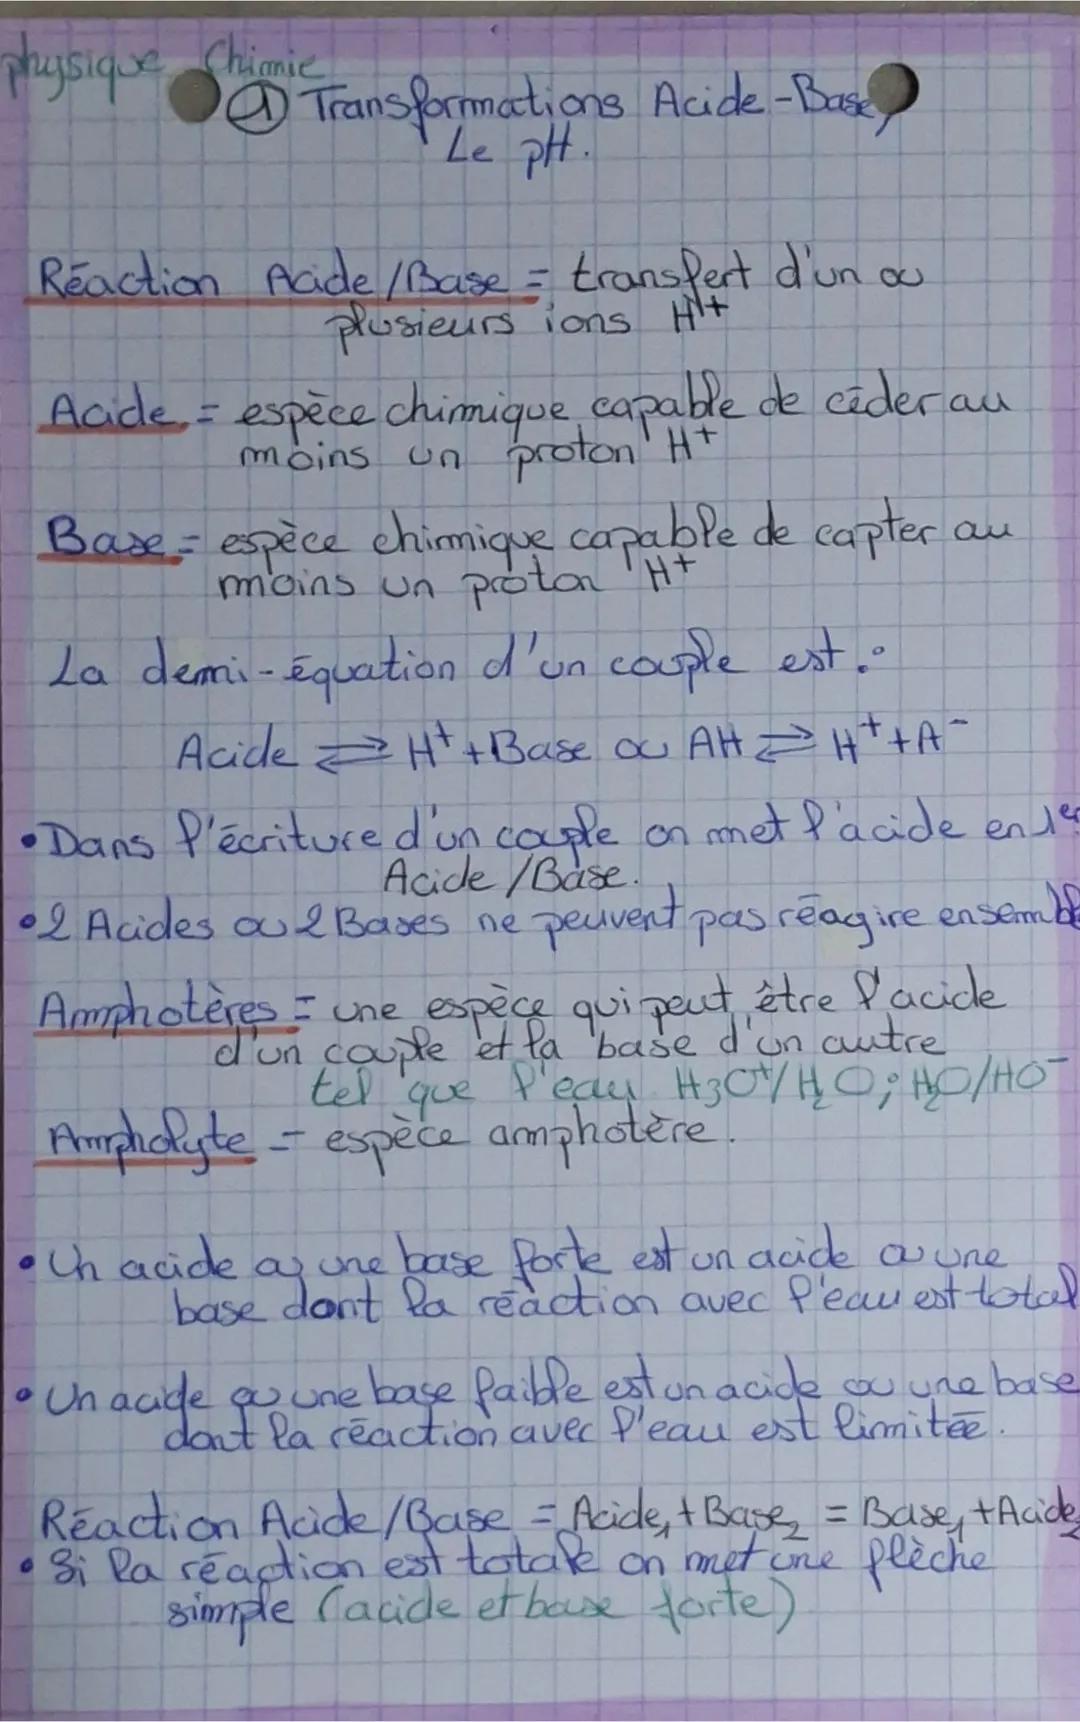 physique Chimie
① Transformations Acide-Base,
Le pH.
Réaction Acide/Base = transfert d'un ou
plusieurs ions H+
Acide = espèce chimique capable de céder au
moins un proton H+
Base = espèce chimique capable de capter au
moins un proton H+
La demi-équation d'un couple est :
Acide ⇌ H⁺ + Base ou AH ⇌ H⁺ + A⁻
• Dans l'écriture d'un couple on met l'acide en 1er
Acide/Base.
• 2 Acides ou 2 Bases ne peuvent pas réagire ensemble
Amphotères = une espèce qui peut être l'acide
d'un couple et la base d'un autre
tel que l'eau H₃O⁺/H₂O ; H₂O/HO⁻
Ampholyte = espèce amphotère.
• Un acide ou une base forte est un acide ou une
base dont la réaction avec l'eau est total
• Un acide ou une base faible est un acide ou une base
dont la réaction avec l'eau est limitée.
Réaction Acide/Base = Acide₁ + Base₂ = Base₁ + Acide₂
• Si la réaction est totale on met une flèche
simple (acide et base forte)